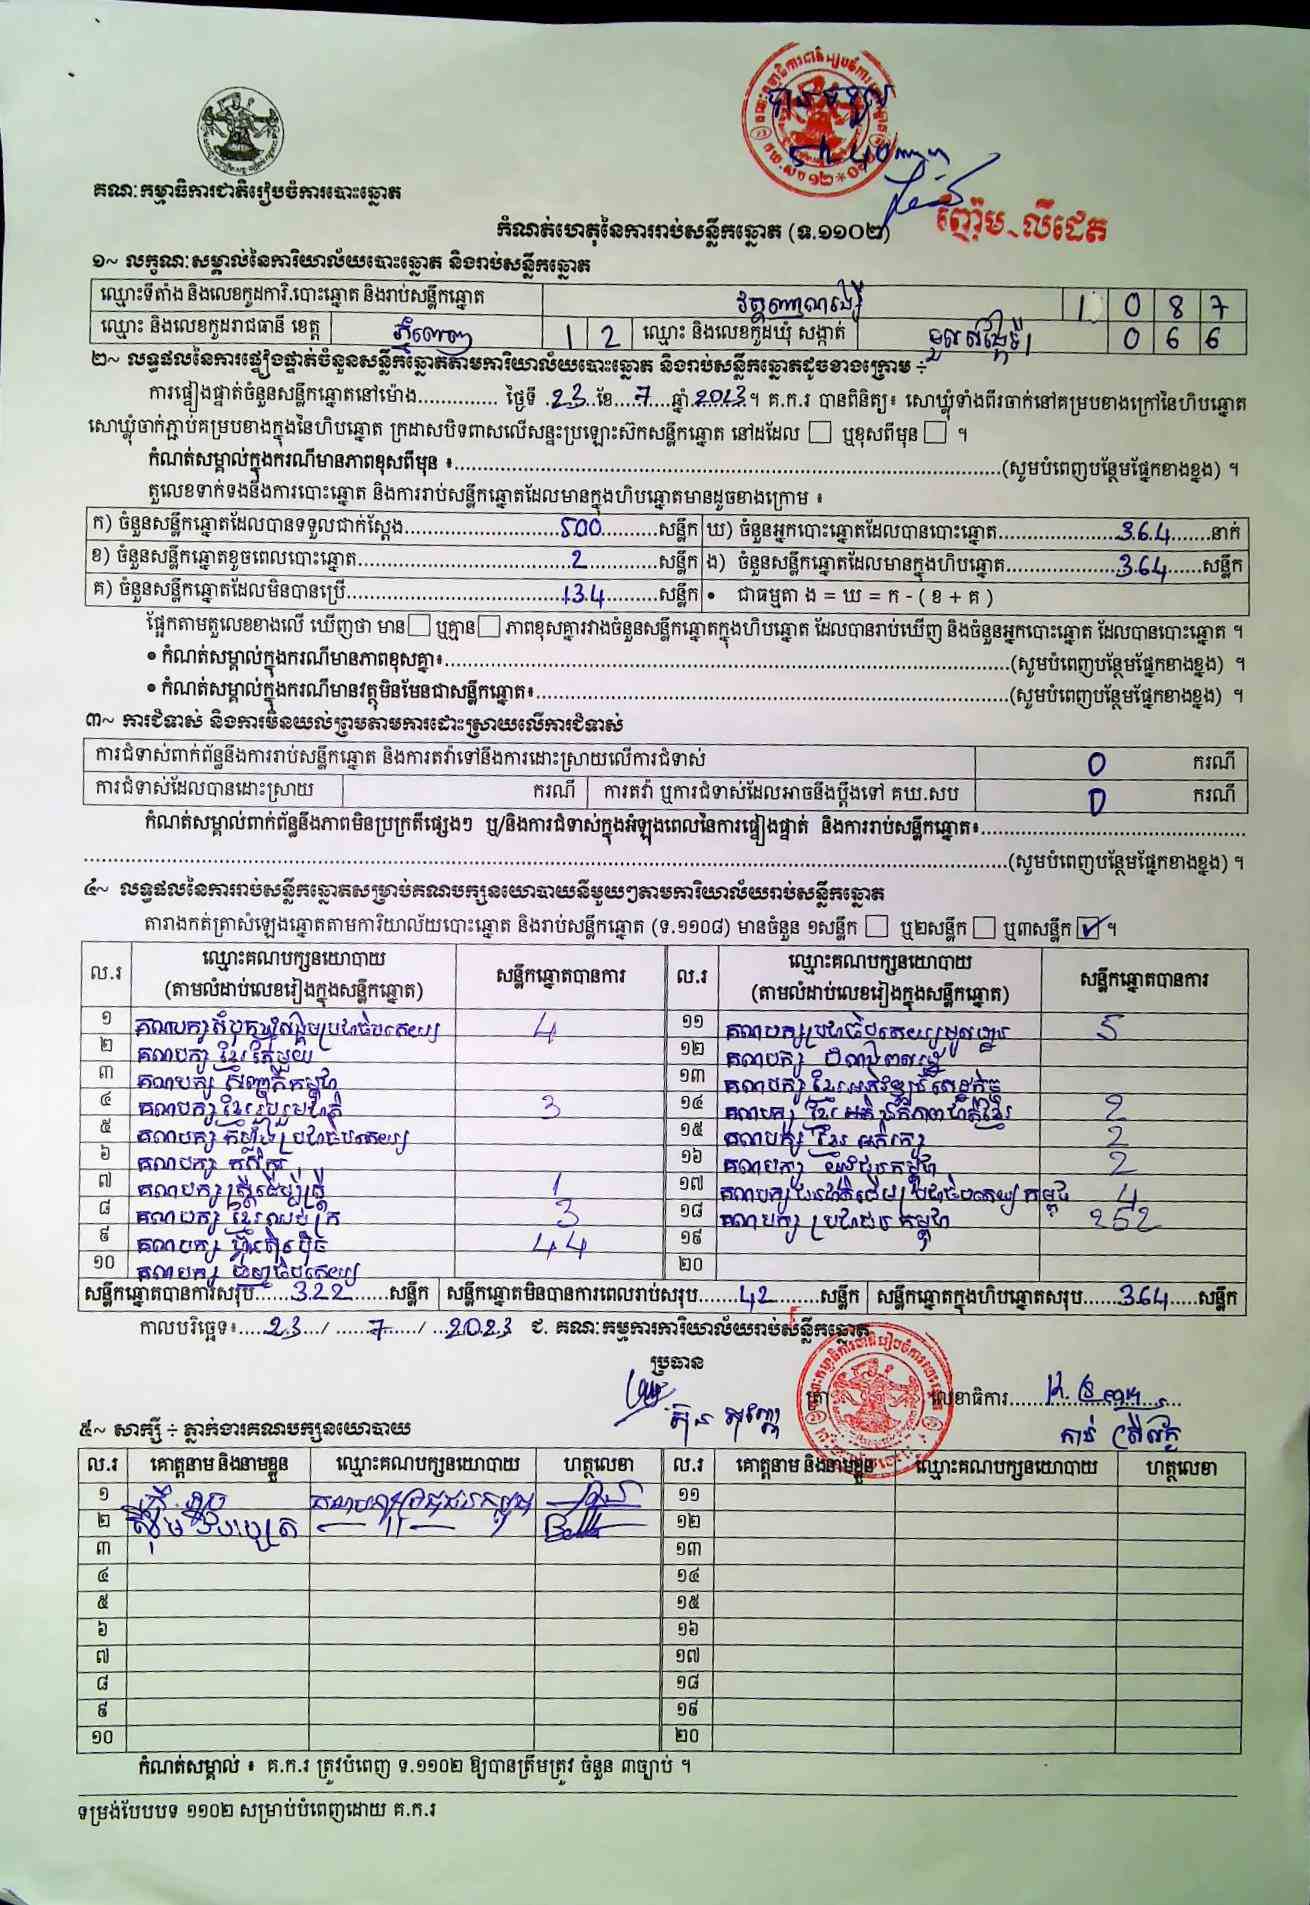 គណៈកម្មាធិការជាតិរៀបចំការបោះឆ្នោត
ញ៉ើម លីដេត
កំណត់ហេតុនៃការរាប់សន្លឹកឆ្នោត (ទ.១១០២)
១~ លក្ខណៈសម្គាល់នៃការិយាល័យបោះឆ្នោត និងរាប់សន្លឹកឆ្នោត
ឈ្មោះទីតាំង និងលេខកូដការិ.បោះឆ្នោត និងរាប់សន្លឹកឆ្នោត 1 0 8 7
ឈ្មោះ និងលេខកូដរាជធានី ខេត្ត ភ្នំពេញ 1 2 ឈ្មោះ និងលេខកូដឃុំ សង្កាត់ ទួលសង្កែទី1 0 6 6
២~ លទ្ធផលនៃការផ្ទៀងផ្ទាត់ចំនួនសន្លឹកឆ្នោតតាមការិយាល័យបោះឆ្នោត និងរាប់សន្លឹកឆ្នោតដូចខាងក្រោម ÷
ការផ្ទៀងផ្ទាត់ចំនួនសន្លឹកឆ្នោតនៅម៉ោង.............. ថ្ងៃទី 23 ខែ 7 ឆ្នាំ 2023 ។ គ.ក.រ បានពិនិត្យ៖ សោឃ្លុំទាំងពីរចាក់នៅគម្របខាងក្រៅនៃហិបឆ្នោត
សោឃ្លុំចាក់ភ្ជាប់គម្របខាងក្នុងនៃហិបឆ្នោត ក្រដាសបិទពាសលើសន្ទះប្រឡោះស៊កសន្លឹកឆ្នោត នៅដដែល ☐ ឬខុសពីមុន ☐ ។
កំណត់សម្គាល់ក្នុងករណីមានភាពខុសពីមុន ៖..........(សូមបំពេញបន្ថែមផ្នែកខាងខ្នង) ។
តួលេខទាក់ទងនឹងការបោះឆ្នោត និងការរាប់សន្លឹកឆ្នោតដែលមានក្នុងហិបឆ្នោតមានដូចខាងក្រោម ៖
ក) ចំនួនសន្លឹកឆ្នោតដែលបានទទួលជាក់ស្តែង..........500..........សន្លឹក ឃ) ចំនួនអ្នកបោះឆ្នោតដែលបានបោះឆ្នោត..........364..........នាក់
ខ) ចំនួនសន្លឹកឆ្នោតខូចពេលបោះឆ្នោត..........2..........សន្លឹក ង) ចំនួនសន្លឹកឆ្នោតដែលមានក្នុងហិបឆ្នោត..........364..........សន្លឹក
គ) ចំនួនសន្លឹកឆ្នោតដែលមិនបានប្រើ..........134..........សន្លឹក • ជាធម្មតា ង = ឃ = ក - ( ខ + គ )
ផ្អែកតាមតួលេខខាងលើ ឃើញថា មាន ☐ ឬគ្មាន ☐ ភាពខុសគ្នារវាងចំនួនសន្លឹកឆ្នោតក្នុងហិបឆ្នោត ដែលបានរាប់ឃើញ និងចំនួនអ្នកបោះឆ្នោត ដែលបានបោះឆ្នោត ។
• កំណត់សម្គាល់ក្នុងករណីមានភាពខុសគ្នា៖..........(សូមបំពេញបន្ថែមផ្នែកខាងខ្នង) ។
• កំណត់សម្គាល់ក្នុងករណីមានវត្ថុមិនមែនជាសន្លឹកឆ្នោត៖..........(សូមបំពេញបន្ថែមផ្នែកខាងខ្នង) ។
៣~ ការជំទាស់ និងការមិនយល់ព្រមតាមការដោះស្រាយលើការជំទាស់
ការជំទាស់ពាក់ព័ន្ធនឹងការរាប់សន្លឹកឆ្នោត និងការតវ៉ាទៅនឹងការដោះស្រាយលើការជំទាស់ 0 ករណី
ការជំទាស់ដែលបានដោះស្រាយ ករណី ការតវ៉ា ឬការជំទាស់ដែលអាចនឹងប្តឹងទៅ គឃ.សប 0 ករណី
កំណត់សម្គាល់ពាក់ព័ន្ធនឹងភាពមិនប្រក្រតីផ្សេងៗ ឬ/និងការជំទាស់ក្នុងអំឡុងពេលនៃការផ្ទៀងផ្ទាត់ និងការរាប់សន្លឹកឆ្នោត៖..........
..........(សូមបំពេញបន្ថែមផ្នែកខាងខ្នង) ។
៤~ លទ្ធផលនៃការរាប់សន្លឹកឆ្នោតសម្រាប់គណបក្សនយោបាយនីមួយៗតាមការិយាល័យរាប់សន្លឹកឆ្នោត
តារាងកត់ត្រាសំឡេងឆ្នោតតាមការិយាល័យបោះឆ្នោត និងរាប់សន្លឹកឆ្នោត (ទ.១១០៨) មានចំនួន ១សន្លឹក ☐ ឬ២សន្លឹក ☐ ឬ៣សន្លឹក ☑ ។
ល.រ ឈ្មោះគណបក្សនយោបាយ (តាមលំដាប់លេខរៀងក្នុងសន្លឹកឆ្នោត) សន្លឹកឆ្នោតបានការ ល.រ ឈ្មោះគណបក្សនយោបាយ (តាមលំដាប់លេខរៀងក្នុងសន្លឹកឆ្នោត) សន្លឹកឆ្នោតបានការ
១ គណបក្សសំបុកឃ្មុំសង្គមប្រជាធិបតេយ្យ 4 ១១ គណបក្សប្រជាធិបតេយ្យមូលដ្ឋាន 5
២ គណបក្ស ខ្មែរតែមួយ ១២ គណបក្ស ពលរដ្ឋ
៣ គណបក្ស កម្ពុជា ១៣ គណបក្ស ខ្មែរអភិវឌ្ឍន៍សេដ្ឋកិច្ច
៤ គណបក្ស ខ្មែររួបរួមជាតិ 3 ១៤ គណបក្ស ខ្មែរ ឯកភាពជាតិខ្មែរ 2
៥ គណបក្ស កម្លាំងប្រជាធិបតេយ្យ ១៥ គណបក្ស ខ្មែរអភិរក្ស 2
៦ គណបក្ស កសិករ ១៦ គណបក្ស យុវជនកម្ពុជា 2
៧ គណបក្សស្ត្រីដើម្បីស្ត្រី 1 ១៧ គណបក្សជនជាតិដើមប្រជាធិបតេយ្យកម្ពុជា 4
៨ គណបក្ស ខ្មែរឈប់ក្រ 3 ១៨ គណបក្ស ប្រជាជនកម្ពុជា 252
៩ គណបក្ស ហ្វ៊ុនស៊ិនប៉ិច 44 ១៩
១០ គណបក្ស ធម្មាធិបតេយ្យ ២០
សន្លឹកឆ្នោតបានការសរុប......322......សន្លឹក សន្លឹកឆ្នោតមិនបានការពេលរាប់សរុប......42......សន្លឹក សន្លឹកឆ្នោតក្នុងហិបឆ្នោតសរុប......364......សន្លឹក
កាលបរិច្ឆេទ៖ 23 / 7 / 2023 ជ. គណៈកម្មការការិយាល័យរាប់សន្លឹកឆ្នោត
ប្រធាន
លេខាធិការ
៥~ សាក្សី ÷ ភ្នាក់ងារគណបក្សនយោបាយ
ល.រ គោត្តនាម និងនាមខ្លួន ឈ្មោះគណបក្សនយោបាយ ហត្ថលេខា ល.រ គោត្តនាម និងនាមខ្លួន ឈ្មោះគណបក្សនយោបាយ ហត្ថលេខា
១ គណបក្សប្រជាជនកម្ពុជា ១១
២ —〃— ១២
៣ ១៣
៤ ១៤
៥ ១៥
៦ ១៦
៧ ១៧
៨ ១៨
៩ ១៩
១០ ២០
កំណត់សម្គាល់ ៖ គ.ក.រ ត្រូវបំពេញ ទ.១១០២ ឱ្យបានត្រឹមត្រូវ ចំនួន ៣ច្បាប់ ។
ទម្រង់បែបបទ ១១០២ សម្រាប់បំពេញដោយ គ.ក.រ